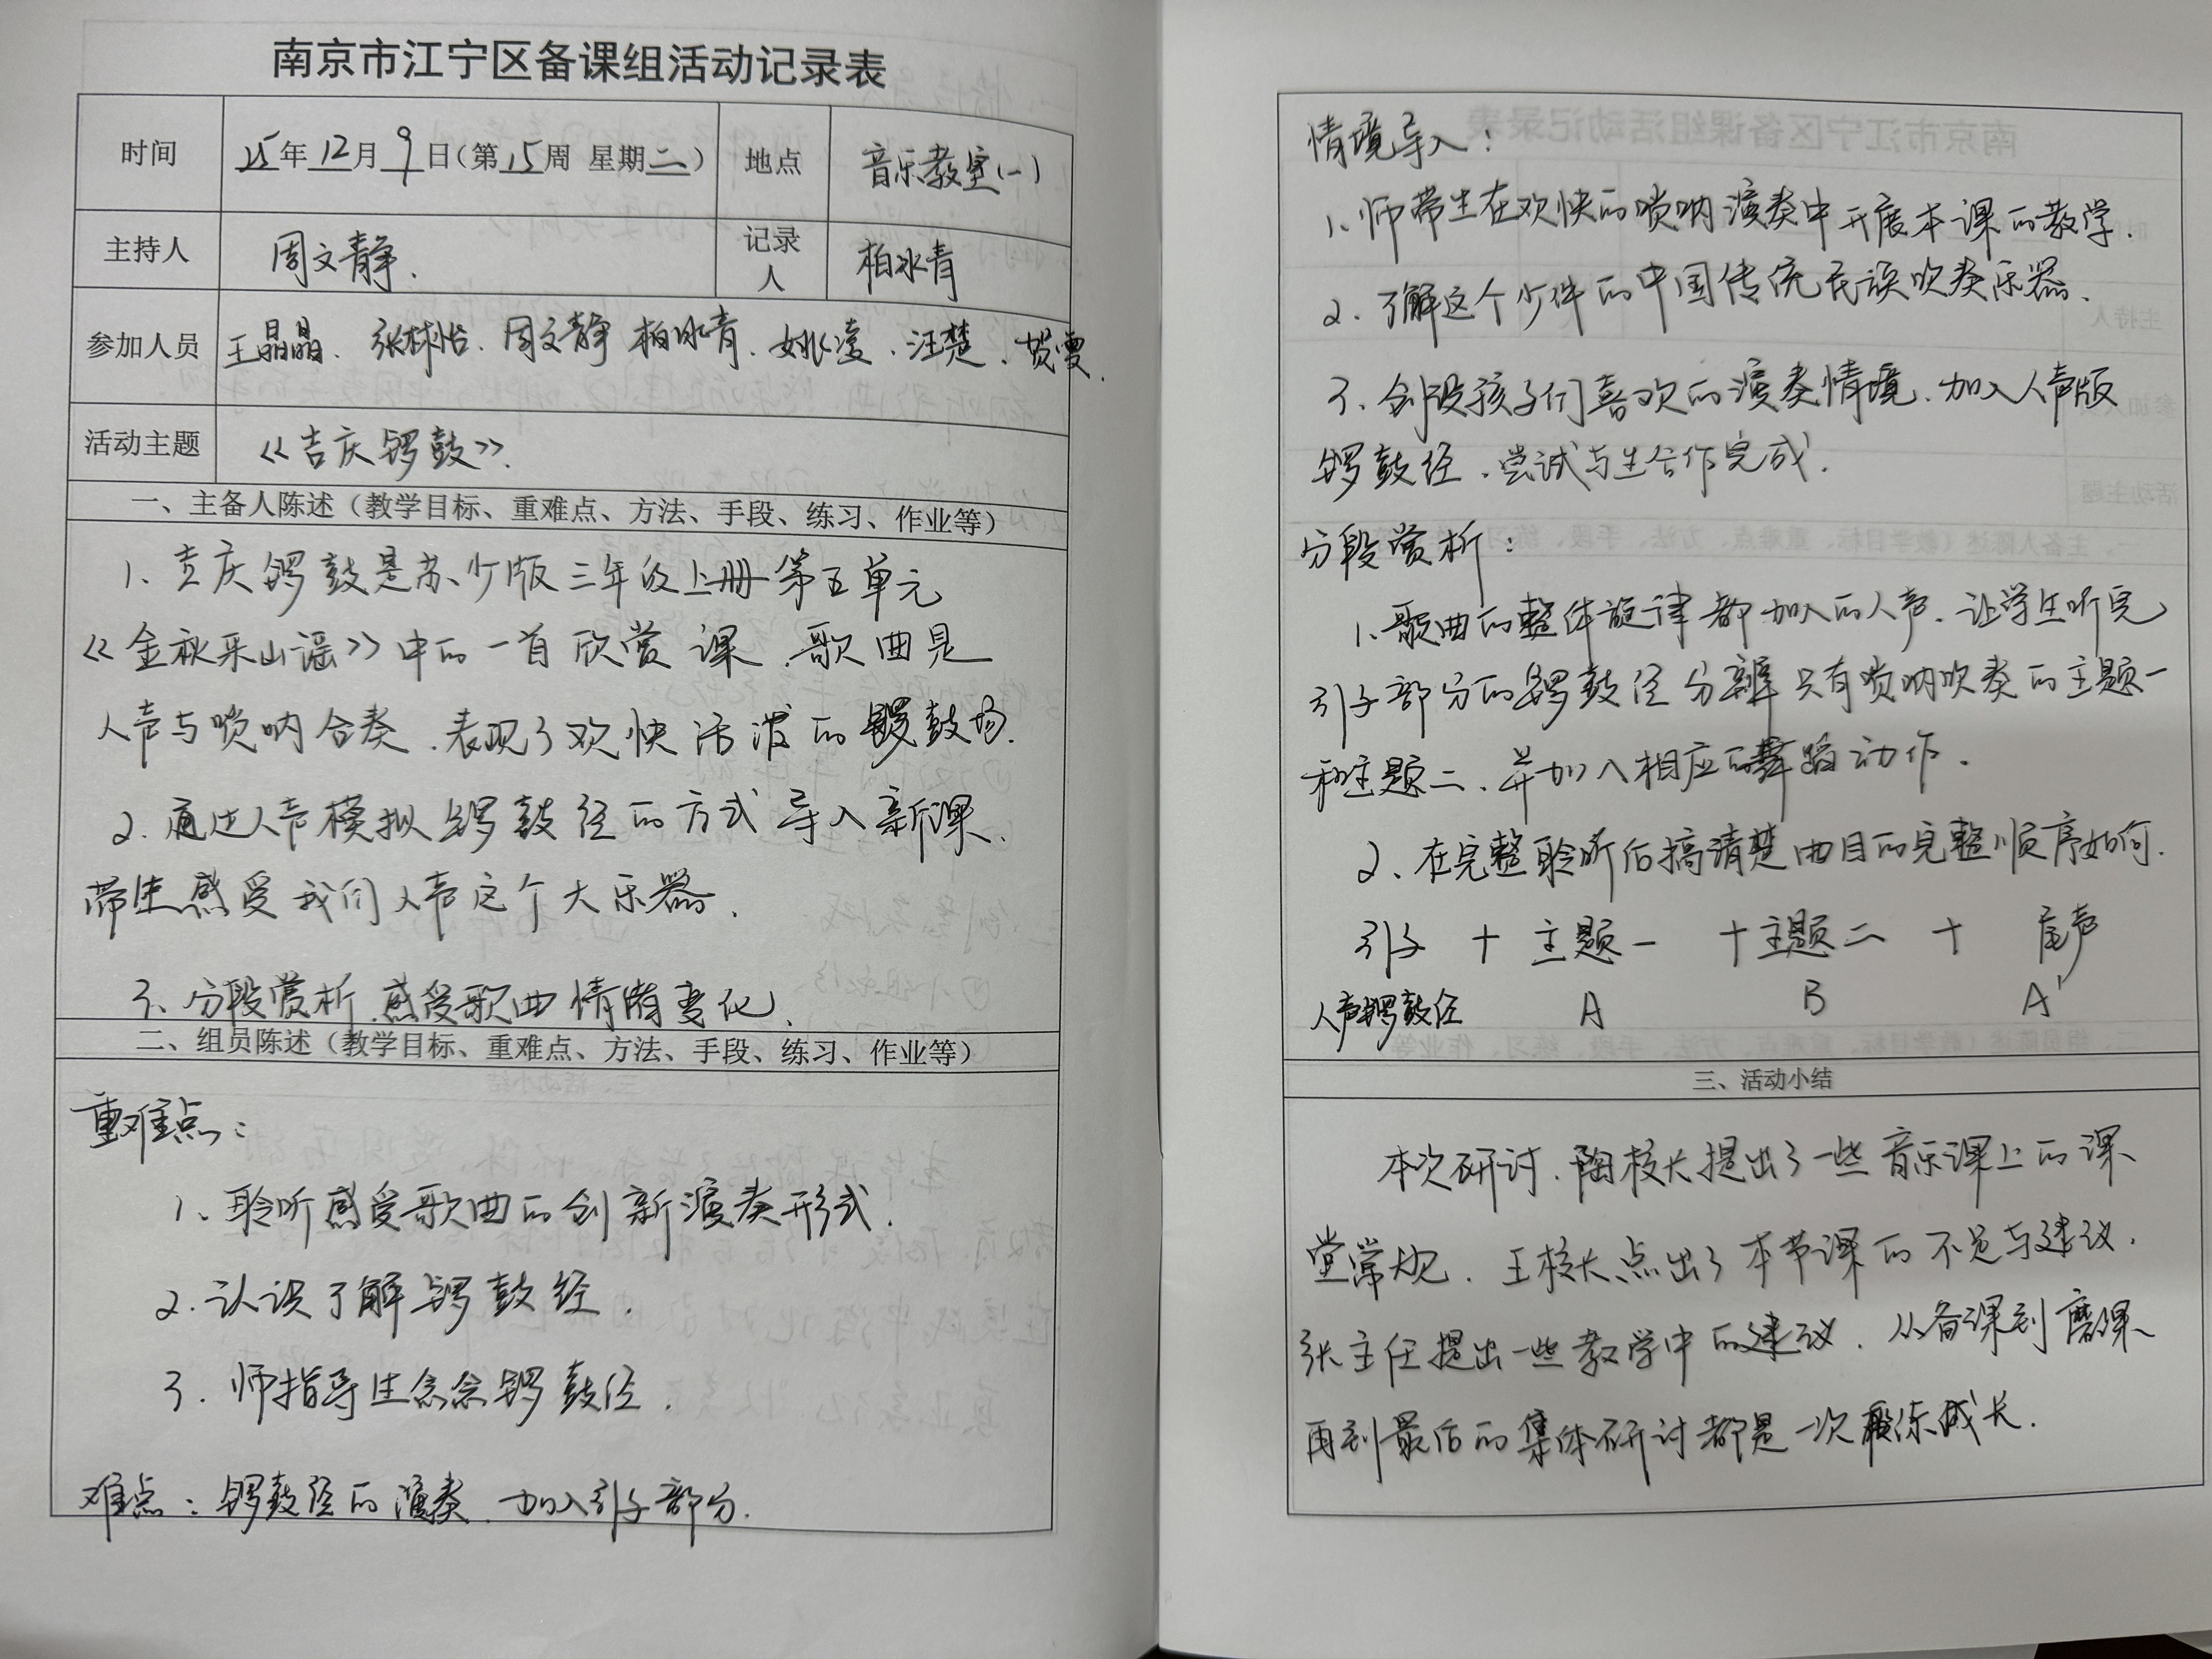 南京市江宁区备课组活动记录表
时间 25年12月9日（第15周 星期二） 地点 音乐教室(一)
主持人 周文静. 记录人 柏冰青
参加人员 王晶晶、张林怡、周文静 柏冰青、姚凌、汪楚、贺雯.
活动主题 《吉庆锣鼓》.
一、主备人陈述（教学目标、重难点、方法、手段、练习、作业等）
1、吉庆锣鼓是苏少版三年级上册第五单元
《金秋采山谣》中的一首欣赏课、歌曲是
人声与唢呐合奏、表现了欢快活泼的锣鼓场.
2、通过人声模拟锣鼓经的方式导入新课、
带生感受我们人声这个大乐器、
3、分段赏析、感受歌曲情绪变化、
二、组员陈述（教学目标、重难点、方法、手段、练习、作业等）
重难点：
1、聆听感受歌曲的创新演奏形式.
2.认识了解锣鼓经.
3.师指导生念念锣鼓经.
难点：锣鼓经的演奏、加入引子部分.
情境导入：
1、师带生在欢快的唢呐演奏中开展本课的教学.
2、了解这个少件的中国传统民族吹奏乐器、
3、创设孩子们喜欢的演奏情境、加入人声版
锣鼓经、尝试与生合作完成.
分段赏析：
1、歌曲的整体旋律都加入的人声、让学生听完
引子部分的锣鼓经分辨只有唢呐吹奏的主题一
和主题二、并加入相应的舞蹈动作.
2、在完整聆听后搞清楚曲目的完整顺序如何.
引子 + 主题一 + 主题二 + 尾声
人声锣鼓经 A B A'
三、活动小结
本次研讨、陶校长提出了一些音乐课上的课
堂常规、王校长点出了本节课的不足与建议.
张主任提出一些教学中的建议、从备课到磨课、
再到最后的集体研讨都是一次成长.